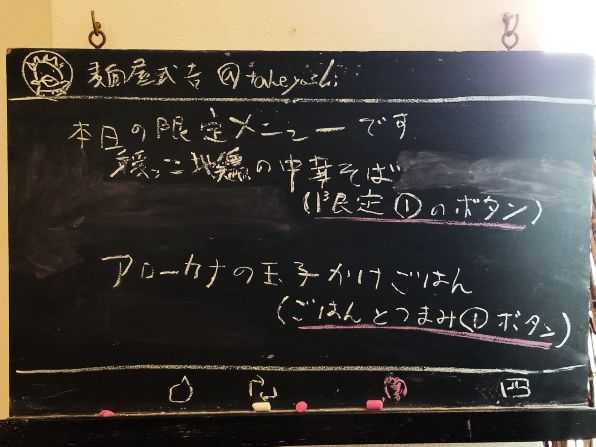 麺屋武吉 @takeyoshi
本日の限定メニューです
媛っこ地鶏の中華そば
(限定①のボタン)
アローカナの玉子かけごはん
(ごはんとつまみ①ボタン)